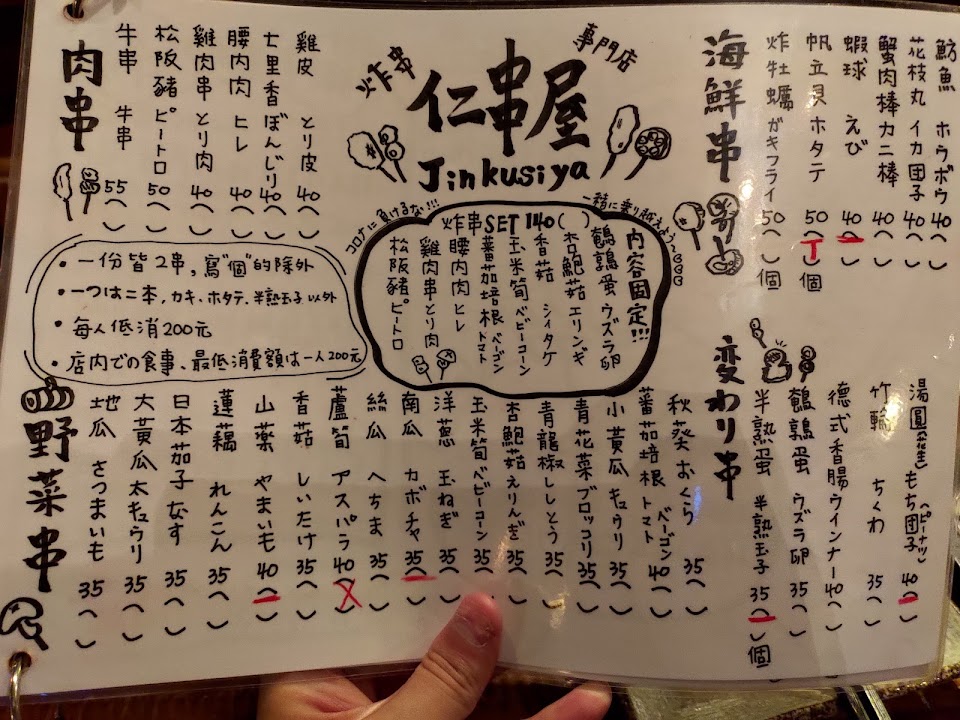 炸串
仁串屋
専門店
Jinkusiya
海鮮串
魴魚 ホウボウ 40( )
花枝丸 イカ団子 40( )
蟹肉棒 カニ棒 40( )
蝦球 えび 40( )
帆立貝 ホタテ 50( )個
炸牡蠣 ガキフライ 50( )個
肉串
雞皮 とり皮 40( )
七里香 ぼんじり 40( )
腰内肉 ヒレ 40( )
雞肉串 とり肉 40( )
松阪豬 ピートロ 50( )
牛串 牛串 55( )
コロナに負けるな!!!
一緒に乗り越えよう~
炸串SET 140( )
内容固定!!!
鵪鶉蛋 ウズラ卵
杏鮑菇 エリンギ
香菇 シィタケ
玉米筍 ベビーコーン
蕃茄培根 ベーゴン トマト
腰内肉 ヒレ
雞肉串 とり肉
松阪豬 ピートロ
• 一份皆2串,寫"個"的除外
• 一つは二本,カキ、ホタテ、半熟玉子以外
• 每人低消200元
• 店内での食事、最低消費額は一人200元
変わり串
湯圓(花生) もち団子(ピーナツ) 40( )
竹輪 ちくわ 35( )
德式香腸 ウインナー 40( )
鵪鶉蛋 ウズラ卵 35( )
半熟蛋 半熟玉子 35( )個
野菜串
秋葵 おくら 35( )
蕃茄培根 ベーゴン トマト 40( )
小黃瓜 キュウリ 35( )
青花菜 ブロッコリ 35( )
青龍椒 ししとう 35( )
杏鮑菇 えりんぎ 35( )
玉米筍 ベビーコーン 35( )
洋蔥 玉ねぎ 35( )
南瓜 カボチャ 35( )
絲瓜 へちま 35( )
蘆筍 アスパラ 40( )
香菇 しいたけ 35( )
山藥 やまいも 40( )
蓮藕 れんこん 35( )
日本茄子 なす 35( )
大黃瓜 太キュウリ 35( )
地瓜 さつまいも 35( )